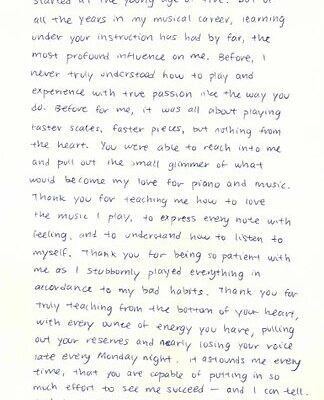 started at the young age of five. But of
all the years in my musical career, learning
under your instruction has had by far, the
most profound influence on me. Before, I
never truly understood how to play and
experience with true passion like the way you
do. Before for me, it was all about playing
faster scales, faster pieces, but nothing from
the heart. You were able to reach into me
and pull out the small glimmer of what
would become my love for piano and music.
Thank you for teaching me how to love
the music I play, to express every note with
feeling, and to understand how to listen to
myself. Thank you for being so patient with
me as I stubbornly played everything in
accordance to my bad habits. Thank you for
truly teaching from the bottom of your heart,
with every ounce of energy you have, pulling
out your reserves and nearly losing your voice
late every Monday night. It astounds me every
time, that you are capable of putting in so
much effort to see me succeed – and I can tell.